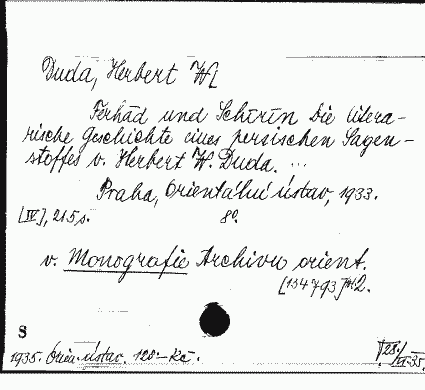 Duda, Herbert W[
Ferhād und Schīrīn Die litera-
rische Geschichte eines persischen Sagen-
stoffes v. Herbert W. Duda. ...
Praha, Orientální ústav, 1933.
[IV], 215 s. 8°.
v. Monografie Archivu orient.
[154793] 2.
S
1935. Orien. ústav. 120 – Kč.